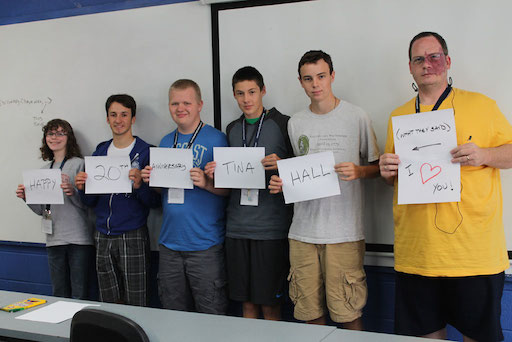 HAPPY
20TH
ANNIVERSARY
TINA
HALL
(WHAT THEY SAID)
I ♡
YOU!